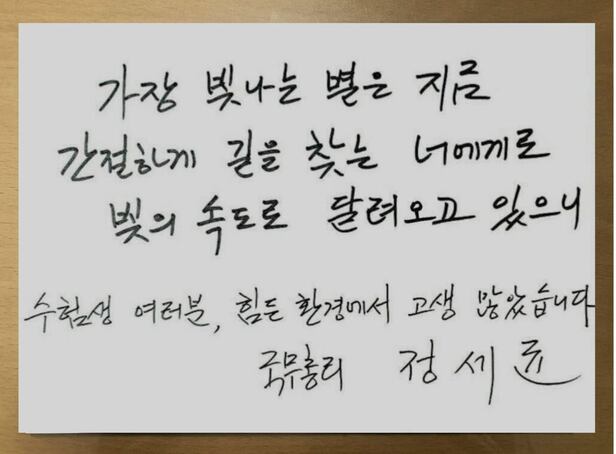 가장 빛나는 별은 지금
간절하게 길을 찾는 너에게로
빛의 속도로 달려오고 있으니
수험생 여러분, 힘든 환경에서 고생 많았습니다
국무총리 정세균